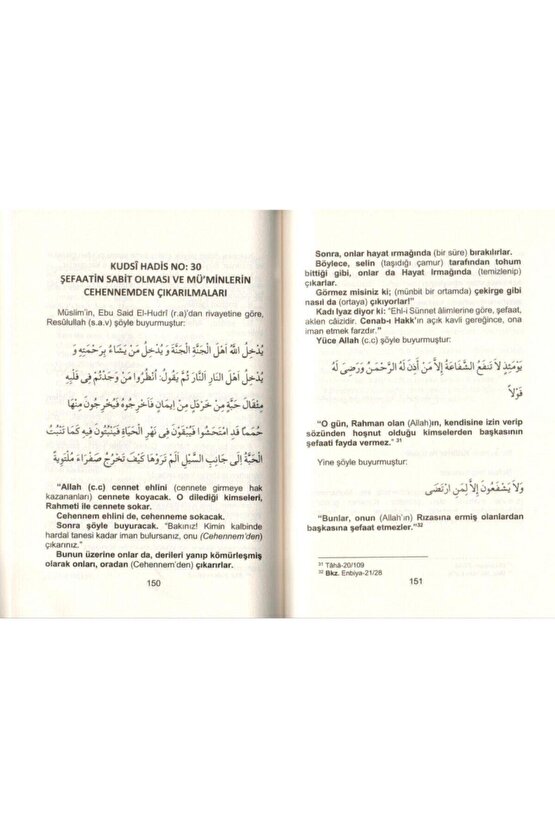 KUDSÎ HADİS NO: 30
ŞEFAATİN SABİT OLMASI VE MÜ'MİNLERİN
CEHENNEMDEN ÇIKARILMALARI
Müslim'in, Ebu Said El-Hudrî (r.a)'dan rivayetine göre,
Resûlullah (s.a.v) şöyle buyurmuştur:
يُدْخِلُ اللّٰهُ اَهْلَ الْجَنَّةِ الْجَنَّةَ وَ يُدْخِلُ مَنْ يَشَاءُ بِرَحْمَتِهِ وَ
يُدْخِلُ اَهْلَ النَّارِ النَّارَ ثُمَّ يَقُولُ: اُنْظُرُوا مَنْ وَجَدْتُمْ فِى قَلْبِهِ
مِثْقَالَ حَبَّةٍ مِنْ خَرْدَلٍ مِنْ اِيمَانٍ فَاَخْرِجُوهُ فَيُخْرِجُونَ مِنْهَا
حُمَمًا قَدِ امْتَحَشُوا فَيُلْقَوْنَ فِى نَهْرِ الْحَيَاةِ فَيَنْبُتُونَ فِيهِ كَمَا تَنْبُتُ
الْحَبَّةُ اِلَى جَانِبِ السَّيْلِ اَلَمْ تَرَوْهَا كَيْفَ تَخْرُجُ صَفْرَاءَ مُلْتَوِيَةً
"Allah (c.c) cennet ehlini (cennete girmeye hak
kazananları) cennete koyacak. O dilediği kimseleri,
Rahmeti ile cennete sokar.
Cehennem ehlini de, cehenneme sokacak.
Sonra şöyle buyuracak. "Bakınız! Kimin kalbinde
hardal tanesi kadar iman bulursanız, onu (Cehennem'den)
çıkarınız."
Bunun üzerine onlar da, derileri yanıp kömürleşmiş
olarak onları, oradan (Cehennem'den) çıkarırlar.
150
Sonra, onlar hayat ırmağında (bir süre) bırakılırlar.
Böylece, selin (taşıdığı çamur) tarafından tohum
bittiği gibi, onlar da Hayat Irmağında (temizlenip)
çıkarlar.
Görmez misiniz ki; (münbit bir ortamda) çekirge gibi
nasıl da (ortaya) çıkıyorlar!"
Kadı Iyaz diyor ki: "Ehl-i Sünnet âlimlerine göre, şefaat,
aklen câizidir. Cenab-ı Hakk'ın açık kavli gereğince, ona
iman etmek farzdır."
Yüce Allah (c.c) şöyle buyurmuştur:
يَوْمَئِذٍ لاَ تَنْفَعُ الشَّفَاعَةُ اِلاَّ مَنْ اَذِنَ لَهُ الرَّحْمٰنُ وَرَضِىَ لَهُ
قَوْلاً
"O gün, Rahman olan (Allah)ın, kendisine izin verip
sözünden hoşnut olduğu kimselerden başkasının
şefaati fayda vermez." 31
Yine şöyle buyurmuştur:
وَلاَ يَشْفَعُونَ اِلاَّ لِمَنِ ارْتَضَى
"Bunlar, onun (Allah'ın) Rızasına ermiş olanlardan
başkasına şefaat etmezler."32
31 Tâhâ-20/109
32 Bkz. Enbiya-21/28
151